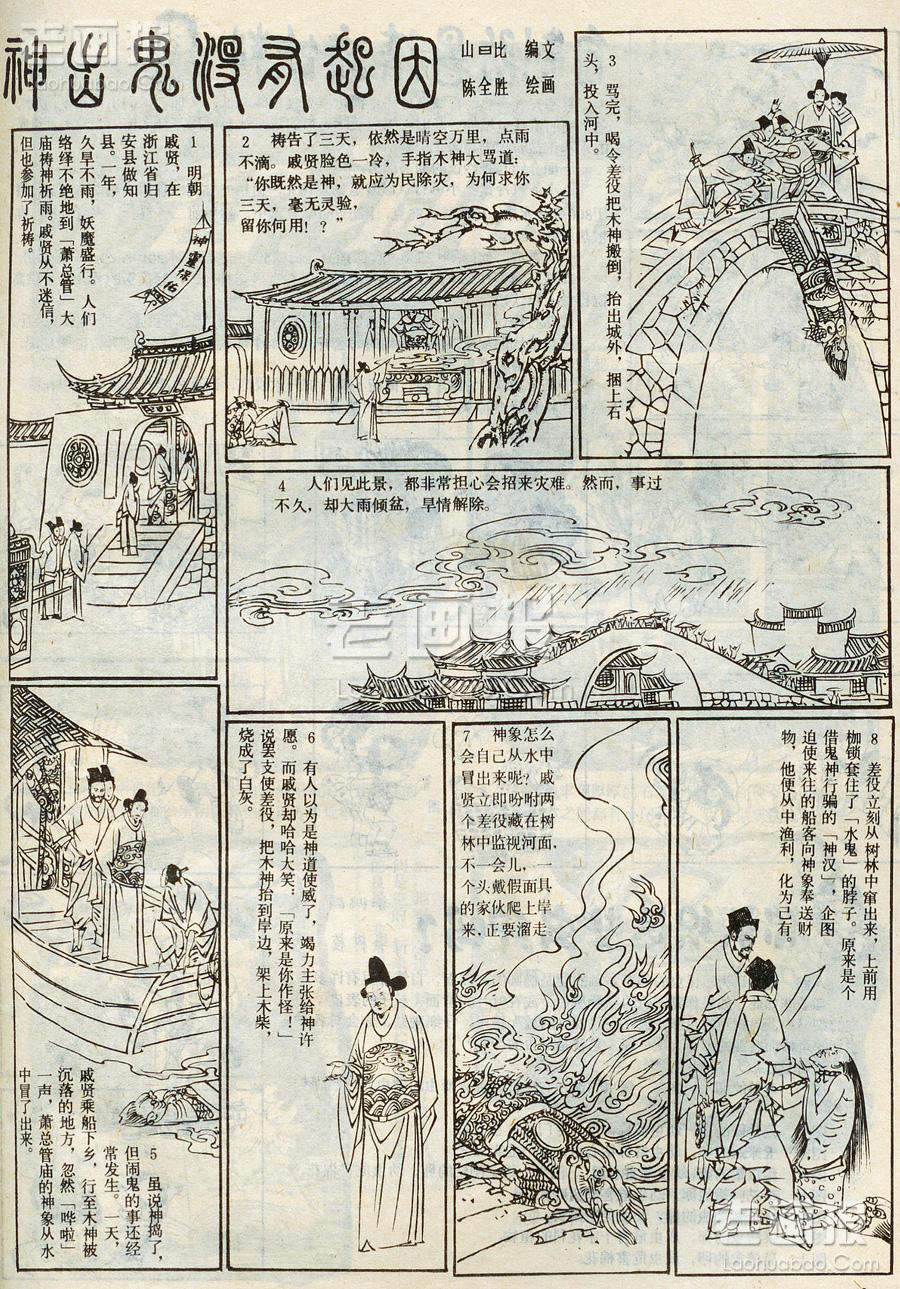 神出鬼没有起因
山曰比 编文
陈全胜 绘画
1 明朝
戚贤，在
浙江省归
安县做知
县。一年，
久旱不雨，妖魔盛行。人们
络绎不绝地到「萧总管」大
庙祷神祈雨。戚贤从不迷信，
但也参加了祈祷。
神靈保佑
2 祷告了三天，依然是晴空万里，点雨
不滴。戚贤脸色一冷，手指木神大骂道：
“你既然是神，就应为民除灾，为何求你
三天，毫无灵验，
留你何用！？”
3 骂完，喝令差役把木神搬倒，抬出城外，捆上石
头，投入河中。
4 人们见此景，都非常担心会招来灾难。然而，事过
不久，却大雨倾盆，旱情解除。
5 虽说神捣了，
但闹鬼的事还经
常发生。一天，
戚贤乘船下乡，行至木神被
沉落的地方，忽然「哗啦」
一声，萧总管庙的神象从水
中冒了出来。
6 有人以为是神道使威了，竭力主张给神许
愿。而戚贤却哈哈大笑：「原来是你作怪！」
说罢支使差役，把木神抬到岸边，架上木柴，
烧成了白灰。
7 神象怎么
会自己从水中
冒出来呢？戚
贤立即吩咐两
个差役藏在树
林中监视河面，
不一会儿，一
个头戴假面具
的家伙爬上岸
来，正要溜走。
8 差役立刻从树林中窜出来，上前用
枷锁套住了「水鬼」的脖子。原来是个
借鬼神行骗的「神汉」，企图
迫使来往的船客向神象奉送财
物，他便从中渔利，化为己有。
老画报
laohuabao.com
老画报
老画报
Laohuabao.com